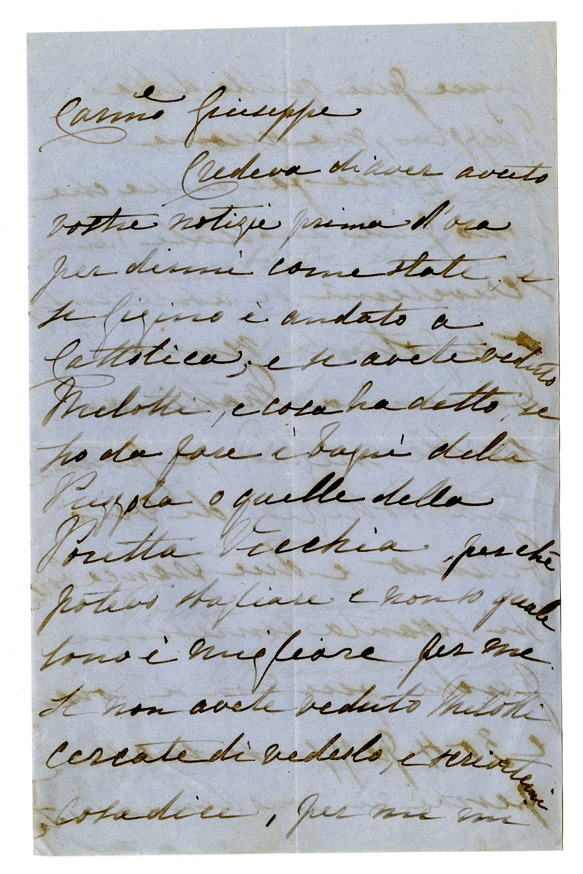 Carmo e Giuseppe
Credeva di aver avuto
vostre notizie prima d'ora
per dirmi come state, e
se Gigino è andato a
Cattolica, e se avete veduto
Melotti, e cosa ha detto, se
ho da fare i bagni della
Puzzola o quelle della
Poretta Vecchia, perché
potevo sbagliare e non so quale
sono i migliore per me.
Se non avete veduto Melotti
cercate di vederlo, e scrivetemi
cosa dice, per me mi